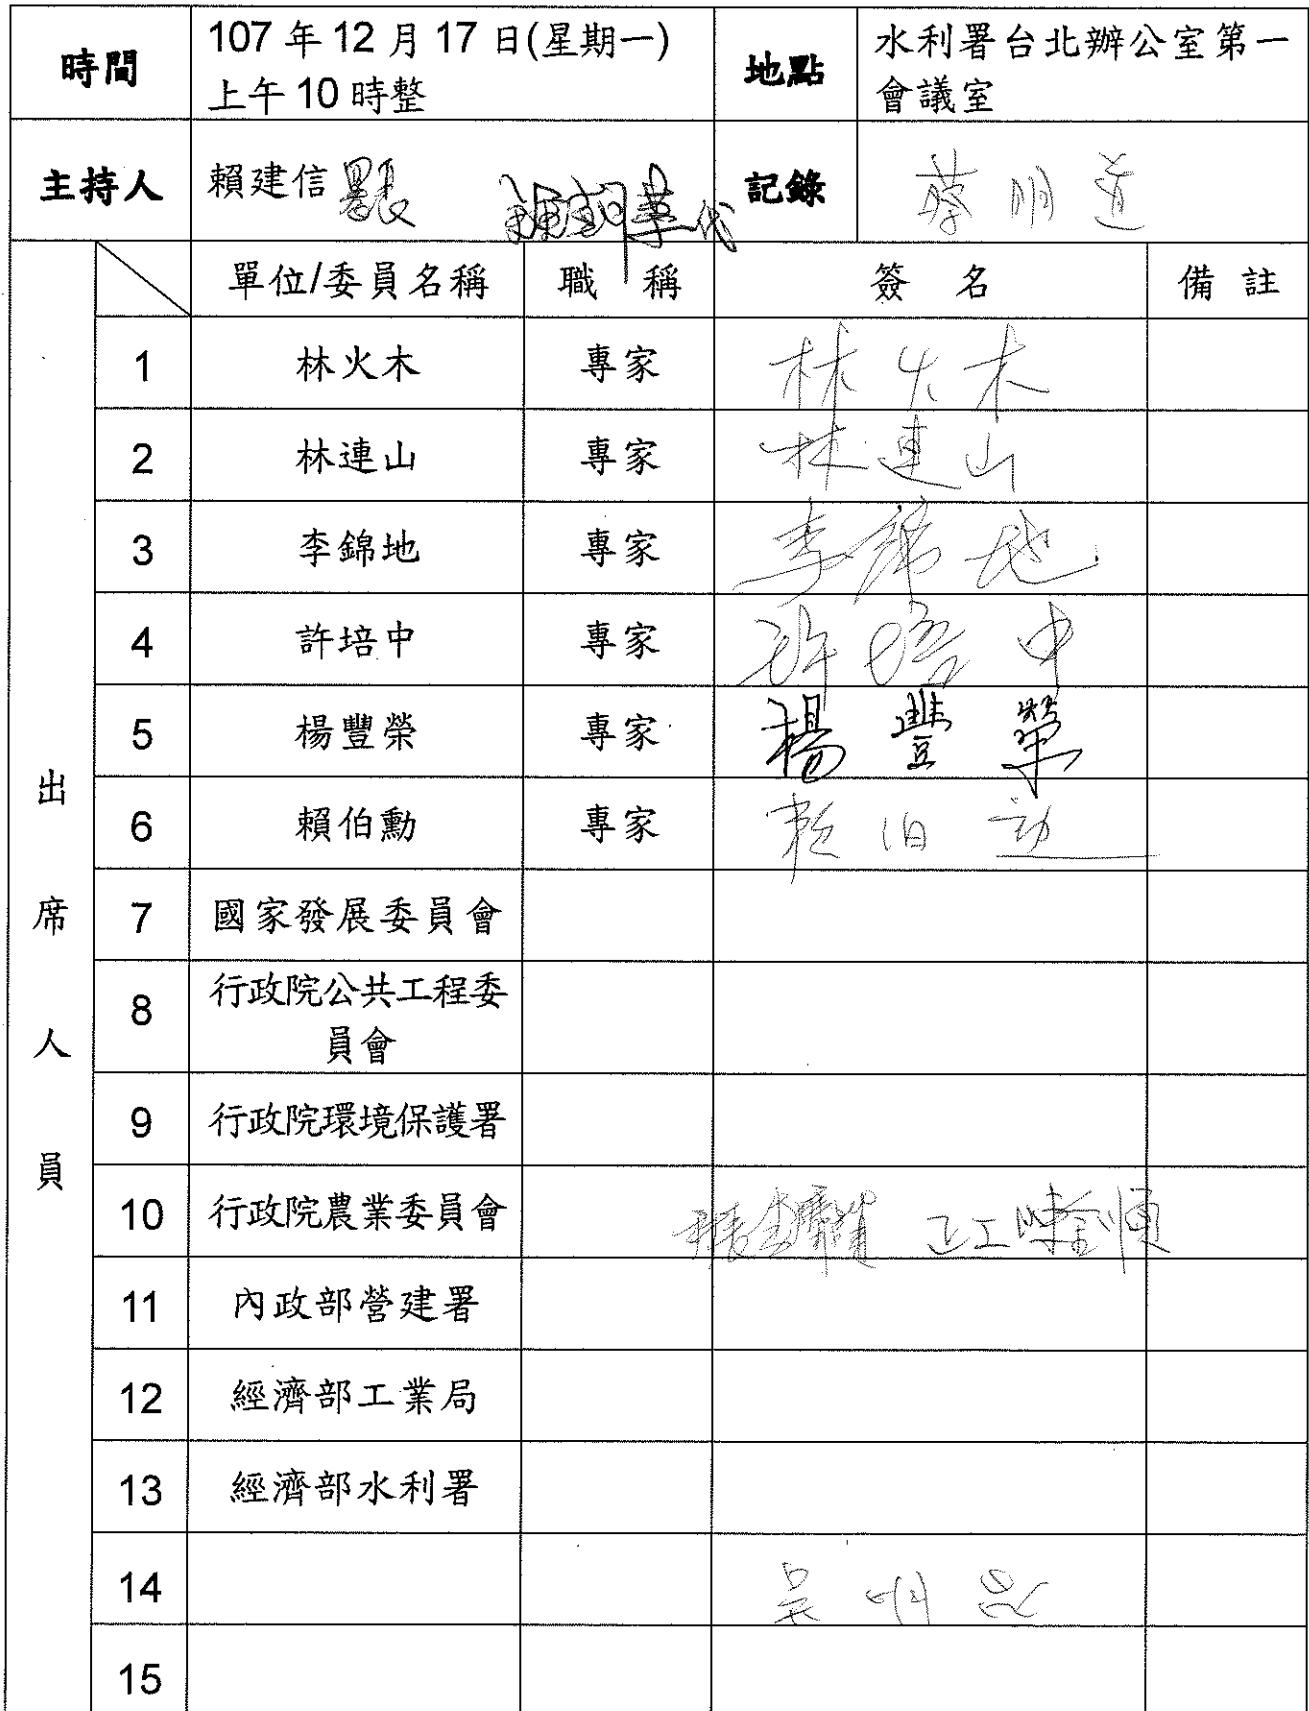 時間 107年12月17日(星期一) 地點 水利署台北辦公室第一
上午10時整 會議室
主持人 賴建信署長 鍾朝恭代 記錄 蔡明道
單位/委員名稱 職稱 簽名 備註
出席人員
1 林火木 專家 林火木
2 林連山 專家 林連山
3 李錦地 專家 李錦地
4 許培中 專家 許培中
5 楊豐榮 專家 楊豐榮
6 賴伯勳 專家 賴伯勳
7 國家發展委員會
8 行政院公共工程委
員會
9 行政院環境保護署
10 行政院農業委員會 正工 陳金順
11 內政部營建署
12 經濟部工業局
13 經濟部水利署
14 吳明昆
15